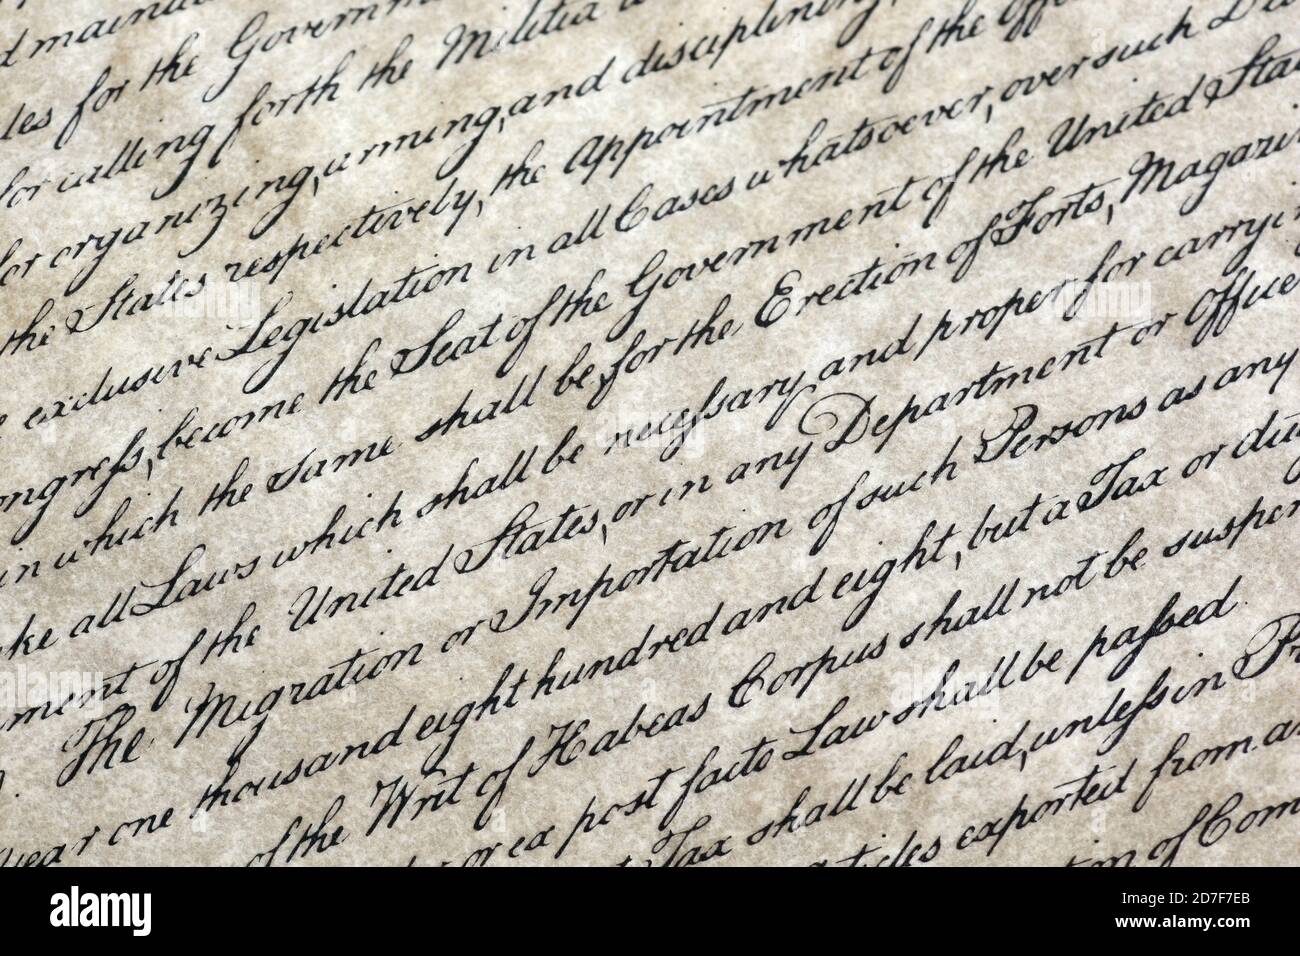 d maintain
les for the Government
for calling forth the Militia
for organizing, arming, and disciplining,
the States respectively, the Appointment of the Offi
exclusive Legislation in all Cases whatsoever, over such Dis
ongreſs, become the Seat of the Government of the United Stat
in which the Same shall be, for the Erection of Forts, Magazin
ke all Laws which shall be neceſsary and proper for carryi
ment of the United States, or in any Department or Office
The Migration or Importation of such Persons as any
year one thousand eight hundred and eight, but a Tax or dut
of the Writ of Habeas Corpus shall not be suspen
or ex post facto Law shall be paſsed.
Tax shall be laid, unleſs in Pr
ticles exported from a
of Com
alamy
Image ID: 2D7F7EB
www.alamy.com